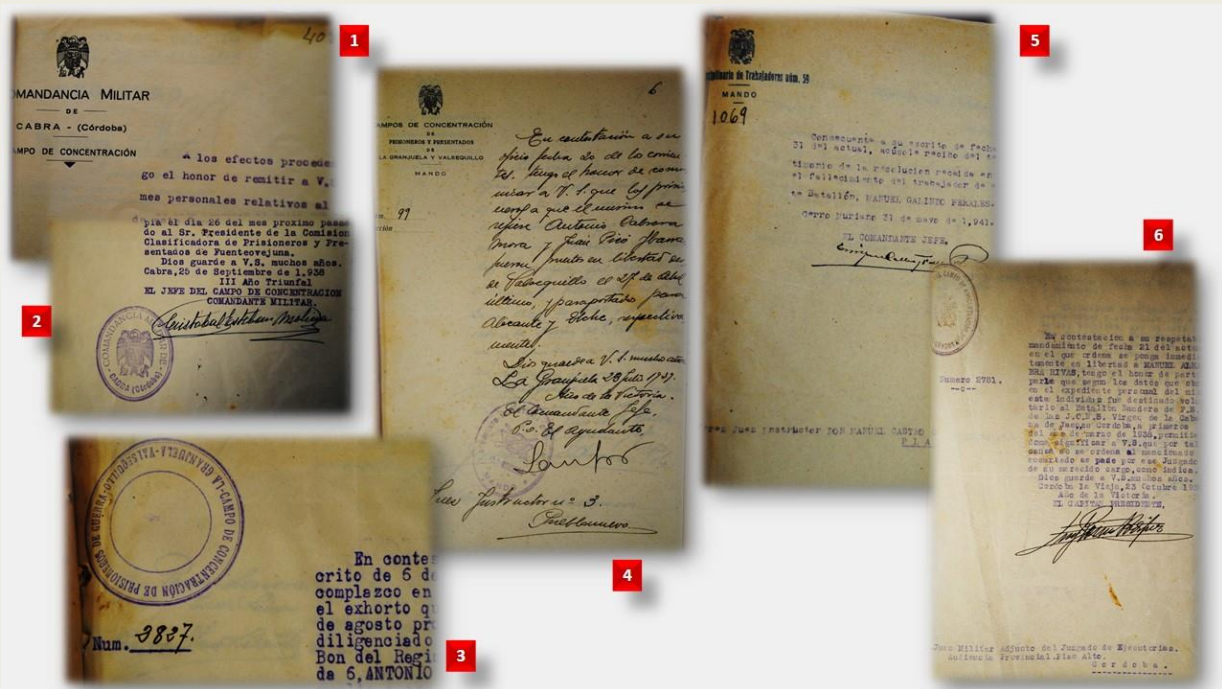 1
40
COMANDANCIA MILITAR
DE
CABRA - (Córdoba)
CAMPO DE CONCENTRACIÓN
A los efectos proceden
go el honor de remitir a V.S
mes personales relativos al
2
pía el día 26 del mes próximo pasa
do al Sr. Presidente de la Comision
Clasificadora de Prisioneros y Pre-
sentados de Fuenteovejuna.
Dios guarde a V.S. muchos años.
Cabra, 25 de Septiembre de 1.938
III Año Triunfal
EL JEFE DEL CAMPO DE CONCENTRACION
COMANDANTE MILITAR.
Cristobal Esteban
COMANDANCIA MILITAR DE
CABRA (Córdoba)
3
CAMPO DE CONCENTRACIÓN DE PRISIONEROS DE GUERRA
LA GRANJUELA-VALSEQUILLO
Num. 3827.
En contes
crito de 6 de
complazco en
el exhorto qu
de agosto pro
diligenciado
Bon del Regi
da 6, ANTONIO
4
6
CAMPOS DE CONCENTRACIÓN
DE
PRISIONEROS Y PRESENTADOS
DE
LA GRANJUELA Y VALSEQUILLO
MANDO
99
En contestación a su
oficio fecha 20 de los corrien
tes, tengo el honor de comu
nicar a V. S. que los prisio
neros a que el mismo se
refiere Antonio Cabrera
Mora y Juan Picó Ibarra
fueron puestos en libertad en
de Valsequillo el 27 de Abril
último, y pasaportados para
Alicante y Elche, respectiva
mente.
Dios guarde a V. S. muchos años
La Granjuela 28 Julio 1939.
Año de la Victoria.
El Comandante Jefe,
P.O. El Ayudante,
Santos
Juez Instructor nº 3.
Pueblonuevo
5
Disciplinario de Trabajadores núm. 59
MANDO
1069
Consecuente a su escrito de fecha
31 del actual, acúsole recibo del tes
timonio de la resolucion recaida en
el fallecimiento del trabajador de es
te Batallón, MANUEL GALINDO PERALES.
Cerro Muriano 31 de mayo de 1.941.
EL COMANDANTE JEFE,
Juez Instructor DON MANUEL CASTRO
PLA
6
Numero 2781.
En contestacion a su respetab
mandamiento de fecha 21 del actu
en el que ordena se ponga inmedi
tamente en libertad a MANUEL
RIVAS, tengo el honor de part
parle que segun los datos que
en el expediente personal del mi
este individuo fue destinado volu
tario al Batallón Bandera de F.E.
de las J.O.N.S. Virgen de la Cabe
za de Jaen Cordoba, a primeros
de marzo de 1938, permitie
dome significar a V.S. que por tal
causa no se ordena al mencionado
encartado se pase por ese Juzgado
de su merecido cargo, como indica.
Dios guarde a V.S. muchos años.
Cordoba la Vieja, 23 Octubre 193
Año de la Victoria.
EL CAPITAN PRESIDENTE,
Juez Militar Adjunto del Juzgado de Ejecutorias.
Audiencia Provincial. Piso Alto.
Cordoba.